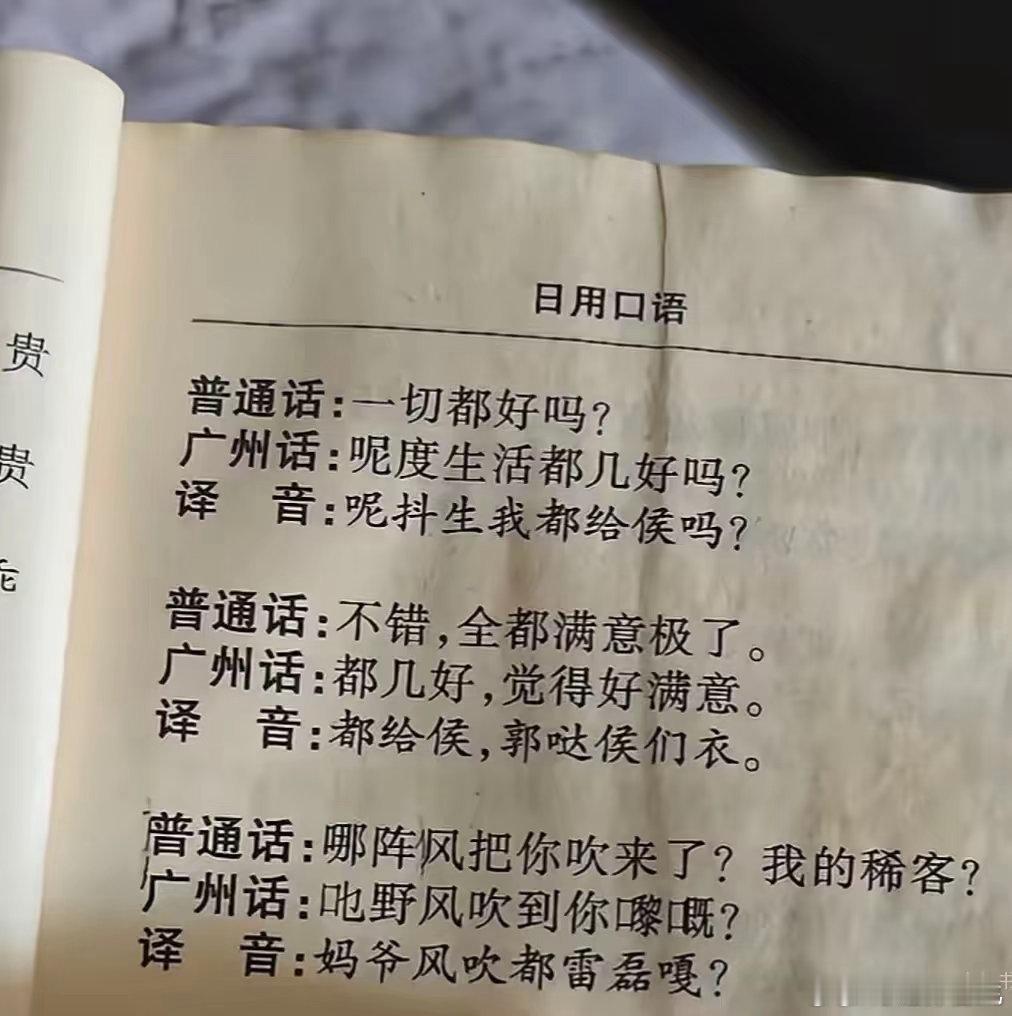 日用口语
普通话:一切都好吗?
广州话:呢度生活都几好吗?
译 音:呢抖生我都给侯吗?
普通话:不错,全都满意极了。
广州话:都几好,觉得好满意。
译 音:都给侯,郭哒侯们衣。
普通话:哪阵风把你吹来了?我的稀客?
广州话:吔野风吹到你嚟嘅?
译 音:妈爷风吹都雷磊嘎?
贵
贵